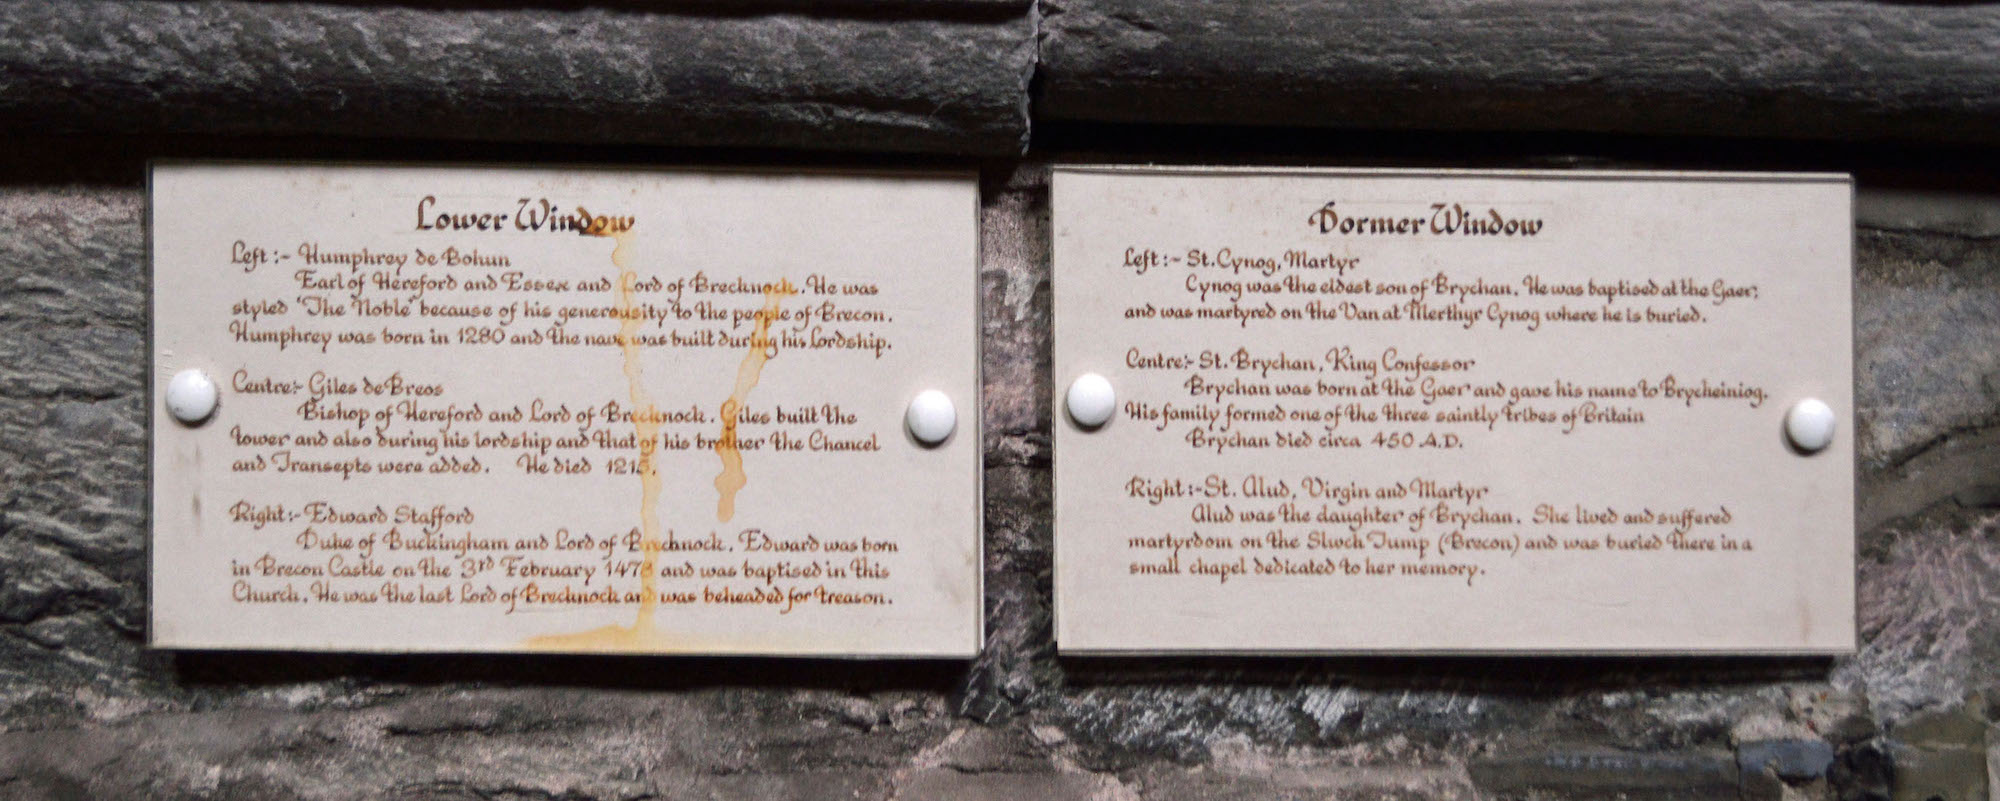 Lower Window
Left :- Humphrey de Bohun
Earl of Hereford and Essex and Lord of Brecknock. He was
styled 'The Noble' because of his generousity to the people of Brecon.
Humphrey was born in 1280 and the nave was built during his Lordship.
Centre:- Giles de Breos
Bishop of Hereford and Lord of Brecknock. Giles built the
tower and also during his lordship and that of his brother the Chancel
and Transepts were added. He died 1215.
Right:- Edward Stafford
Duke of Buckingham and Lord of Brecknock. Edward was born
in Brecon Castle on the 3rd February 1478 and was baptised in this
Church. He was the last Lord of Brecknock and was beheaded for treason.
Dormer Window
Left :- St. Cynog, Martyr
Cynog was the eldest son of Brychan. He was baptised at the Gaer;
and was martyred on the Van at Merthyr Cynog where he is buried.
Centre:- St. Brychan, King Confessor
Brychan was born at the Gaer and gave his name to Brycheiniog.
His family formed one of the three saintly tribes of Britain
Brychan died circa 450 A.D.
Right :- St. Alud, Virgin and Martyr
Alud was the daughter of Brychan. She lived and suffered
martyrdom on the Slwch Tump (Brecon) and was buried there in a
small chapel dedicated to her memory.